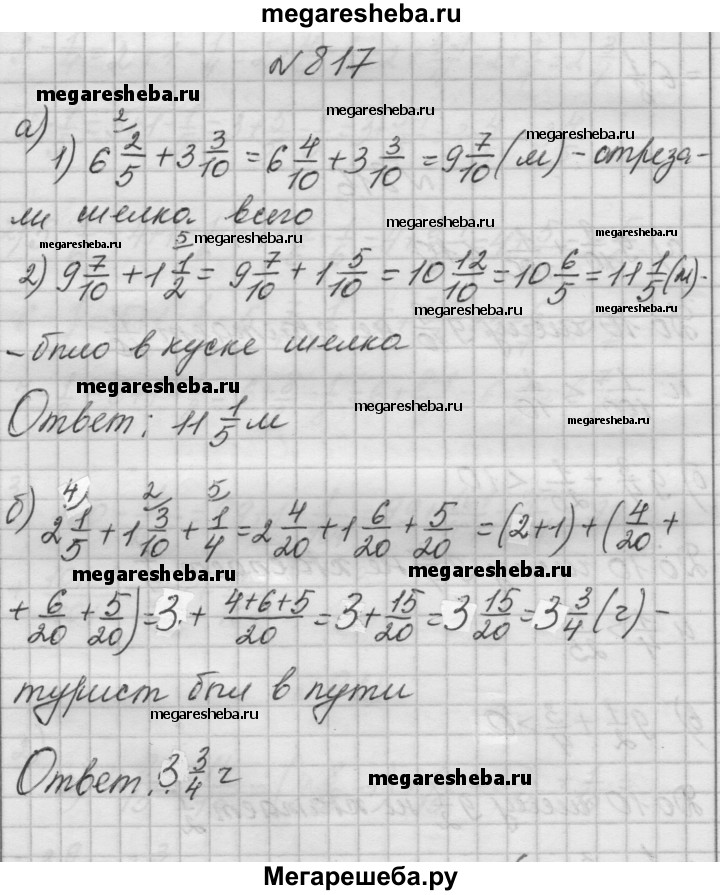 megaresheba.ru
№817
megaresheba.ru
megaresheba.ru
megaresheba.ru
а) 1) 6 2/5 + 3 3/10 = 6 4/10 + 3 3/10 = 9 7/10 (м) - отреза-
ли шелка всего
megaresheba.ru
megaresheba.ru
megaresheba.ru
megaresheba.ru
2) 9 7/10 + 1 1/2 = 9 7/10 + 1 5/10 = 10 12/10 = 10 6/5 = 11 1/5 (м) -
megaresheba.ru
- было в куске шелка
megaresheba.ru
megaresheba.ru
megaresheba.ru
Ответ: 11 1/5 м
б) 2 1/5 + 1 3/10 + 1/4 = 2 4/20 + 1 6/20 + 5/20 = (2+1) + (4/20 +
megaresheba.ru
megaresheba.ru
+ 6/20 + 5/20) = 3 + (4+6+5)/20 = 3 + 15/20 = 3 15/20 = 3 3/4 (г) -
турист был в пути
megaresheba.ru
Ответ: 3 3/4 г
megaresheba.ru
Мегарешеба.ру